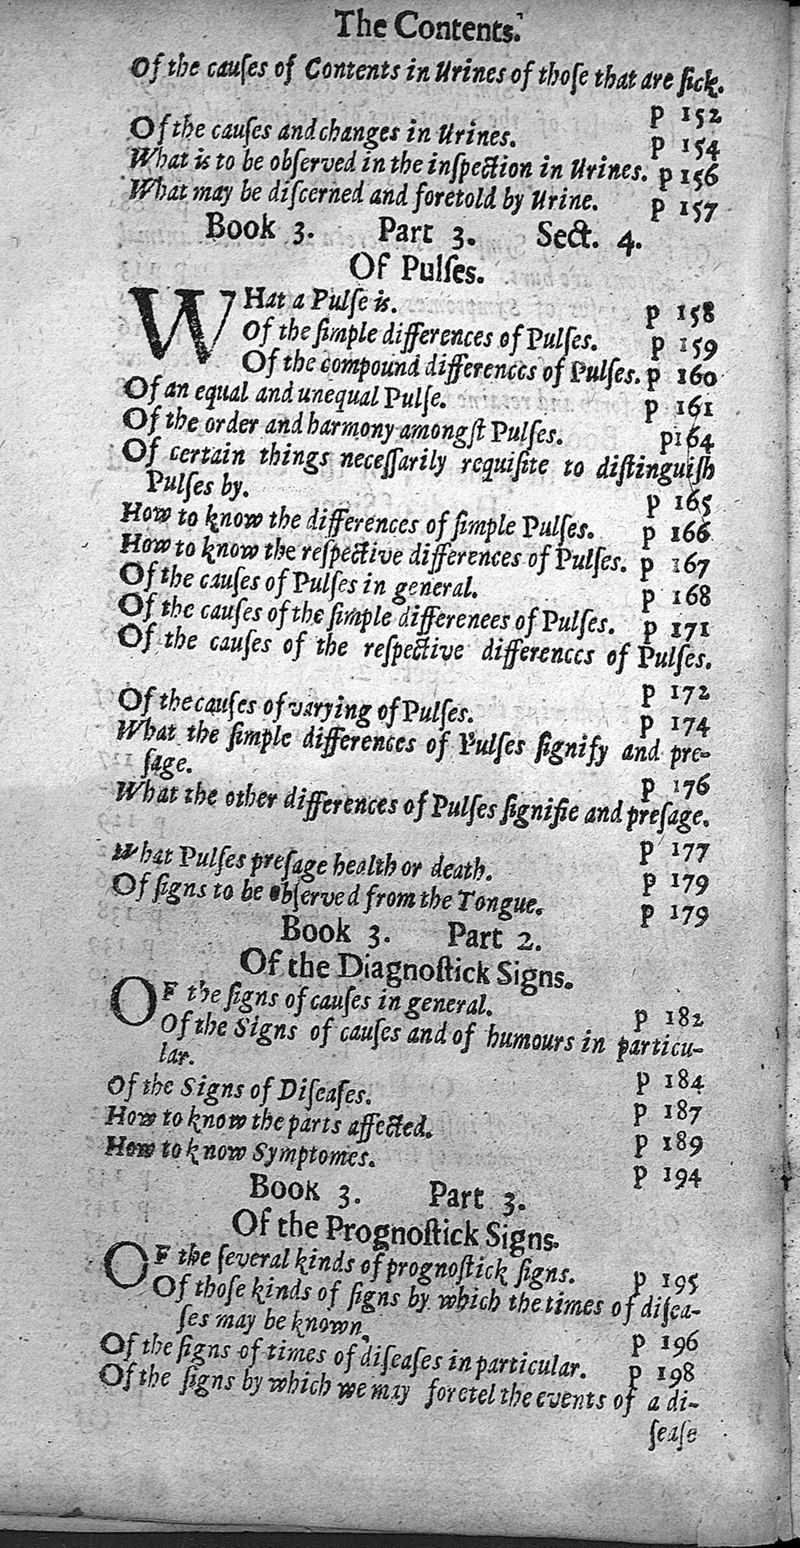 The Contents.
Of the cauſes of Contents in Urines of thoſe that are ſick.
p 152
Of the cauſes and changes in Urines. p 154
What is to be obſerved in the inſpection in Urines. p 156
What may be diſcerned and foretold by Urine. p 157
Book 3. Part 3. Sect. 4.
Of Pulſes.
WHat a Pulſe is. p 158
Of the ſimple differences of Pulſes. p 159
Of the compound differences of Pulſes. p 160
Of an equal and unequal Pulſe. p 161
Of the order and harmony amongſt Pulſes. p164
Of certain things neceſſarily requiſite to diſtinguiſh
Pulſes by. p 165
How to know the differences of ſimple Pulſes. p 166
How to know the reſpective differences of Pulſes. p 167
Of the cauſes of Pulſes in general. p 168
Of the cauſes of the ſimple differenees of Pulſes. p 171
Of the cauſes of the reſpective differences of Pulſes.
p 172
Of the cauſes of varying of Pulſes. p 174
What the ſimple differences of Pulſes ſignify and pre-
ſage. p 176
What the other differences of Pulſes ſignifie and preſage.
p 177
What Pulſes preſage health or death. p 179
Of ſigns to be obſerved from the Tongue. p 179
Book 3. Part 2.
Of the Diagnoſtick Signs.
OF the ſigns of cauſes in general. p 182
Of the Signs of cauſes and of humours in particu-
lar. p 184
Of the Signs of Diſeaſes. p 187
How to know the parts affected. p 189
How to know Symptomes. p 194
Book 3. Part 3.
Of the Prognoſtick Signs.
OF the ſeveral kinds of prognoſtick ſigns. p 195
Of thoſe kinds of ſigns by which the times of diſea-
ſes may be known, p 196
Of the ſigns of times of diſeaſes in particular. p 198
Of the ſigns by which we may foretel the events of a di-
ſeaſe